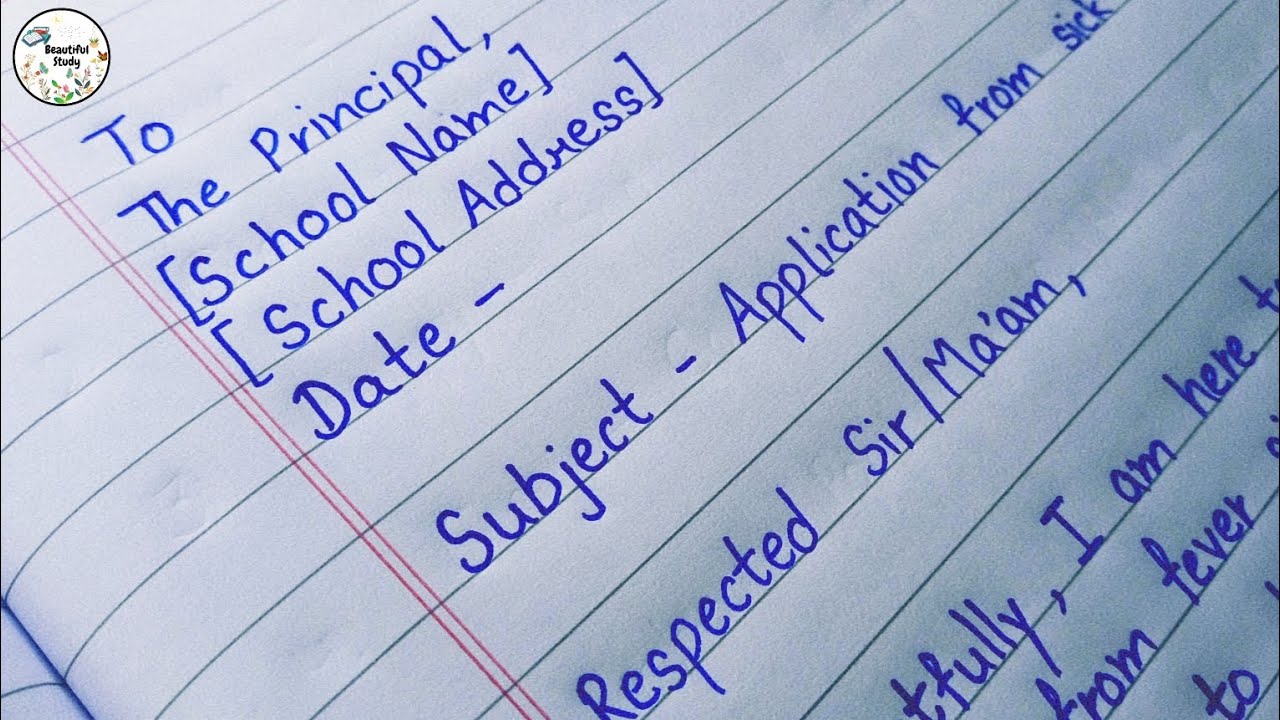 Beautiful
Study
To
The Principal,
[School Name]
[School Address]
Date -
Subject - Application from sick
Respected Sir/Ma'am,
tfully, I am here
from fever
to